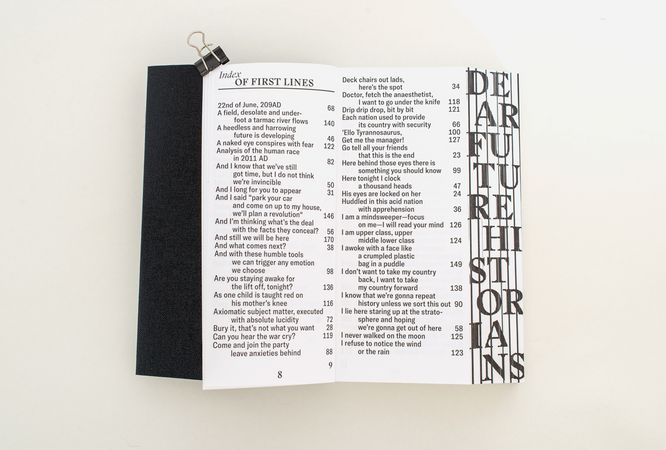 Index
OF FIRST LINES
22nd of June, 209AD 68
A field, desolate and under-
foot a tarmac river flows 140
A heedless and harrowing
future is developing 46
A naked eye conspires with fear 122
Analysis of the human race
in 2011 AD 82
And I know that we've still
got time, but I do not think
we're invincible 50
And I long for you to appear 31
And I said "park your car
and come on up to my house,
we'll plan a revolution" 146
And I'm thinking what's the deal
with the facts they conceal? 56
And still we will be here 170
And what comes next? 38
And with these humble tools
we can trigger any emotion
we choose 98
Are you staying awake for
the lift off, tonight? 136
As one child is taught red on
his mother's knee 116
Axiomatic subject matter, executed
with absolute lucidity 72
Bury it, that's not what you want 28
Can you hear the war cry? 119
Come and join the party
leave anxieties behind 88
8
9
Deck chairs out lads,
here's the spot 34
Doctor, fetch the anaesthetist,
I want to go under the knife 118
Drip drip drop, bit by bit 121
Each nation used to provide
its country with security 66
'Ello Tyrannosaurus, 100
Get me the manager! 127
Go tell all your friends
that this is the end 23
Here behind those eyes there is
something you should know 99
Here tonight I clock
a thousand heads 47
His eyes are locked on her 24
Huddled in this acid nation
with apprehension 36
I am a mindsweeper—focus
on me—I will read your mind 126
I am upper class, upper
middle lower class 124
I awoke with a face like
a crumpled plastic
bag in a puddle 149
I don't want to take my country
back, I want to take
my country forward 138
I know that we're gonna repeat
history unless we sort this out 90
I lie here staring up at the strato-
sphere and hoping
we're gonna get out of here 58
I never walked on the moon 125
I refuse to notice the wind
or the rain 123
DE
AR
FU
TU
RE
HI
ST
OR
IA
NS